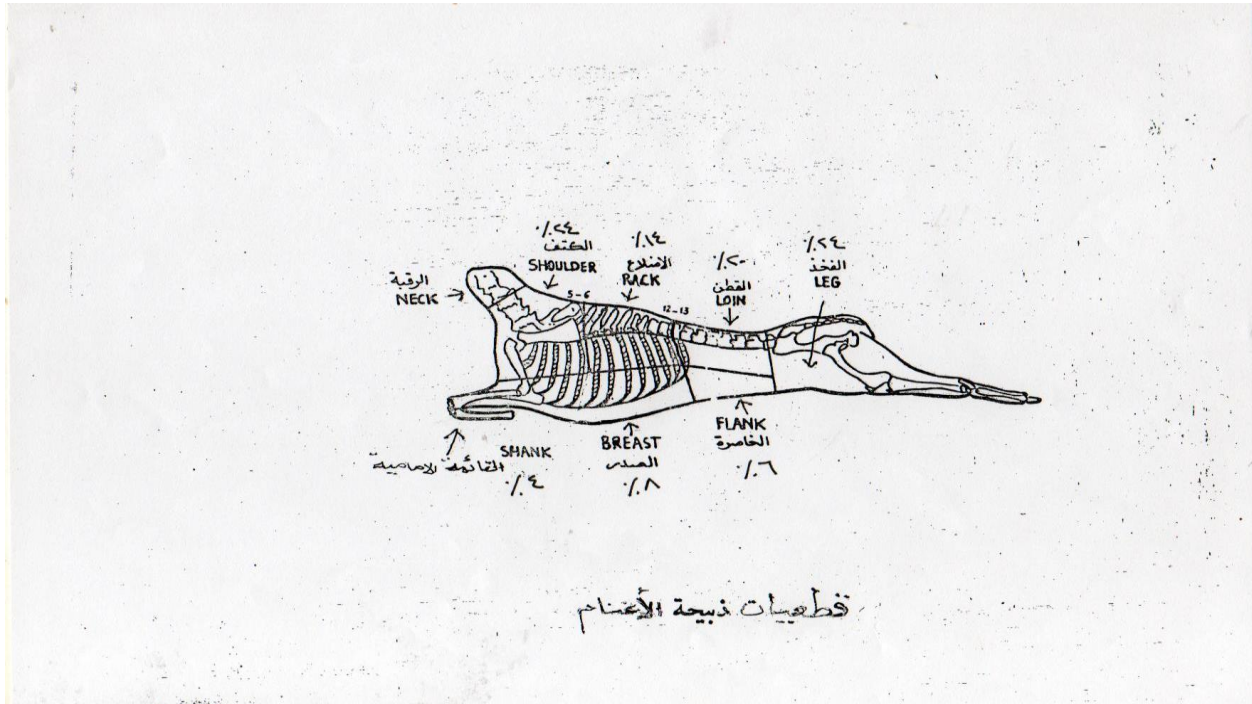 ٪٢٤
الكتف
SHOULDER
٪١٤
الاضلاع
RACK
٪٢٠
القطن
LOIN
٪٢٤
الفخذ
LEG
الرقبة
NECK
5-6
12-13
القائمة الامامية
SHANK
٪٤
BREAST
الصدر
٪٨
FLANK
الخاصرة
٪٦
قطعيات ذبيحة الأغنام